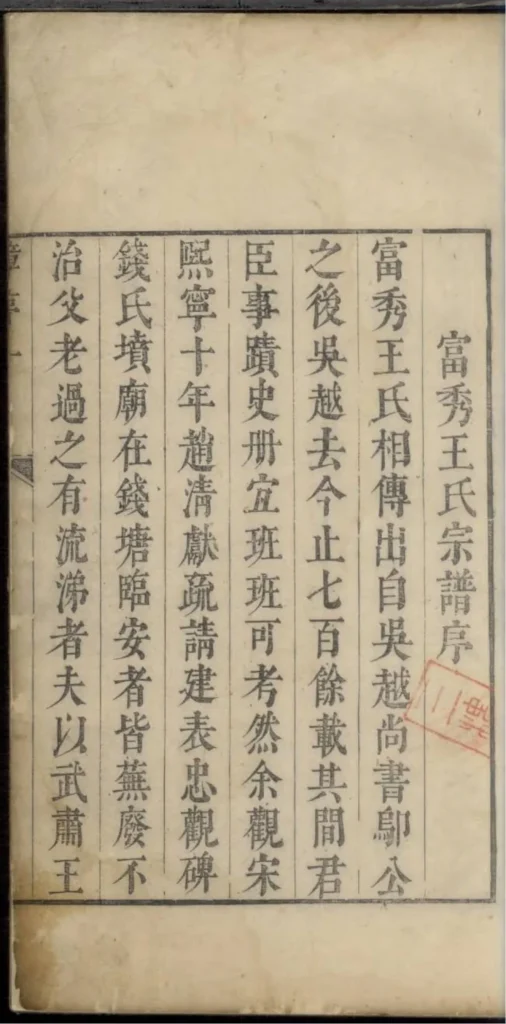 富秀王氏宗譜序
富秀王氏相傳出自吳越尚書鄔公
之後吳越去今止七百餘載其間君
臣事蹟史册宜班班可考然余觀宋
熙寧十年趙清獻疏請建表忠觀碑
錢氏墳廟在錢塘臨安者皆蕪廢不
治父老過之有流涕者夫以武肅王